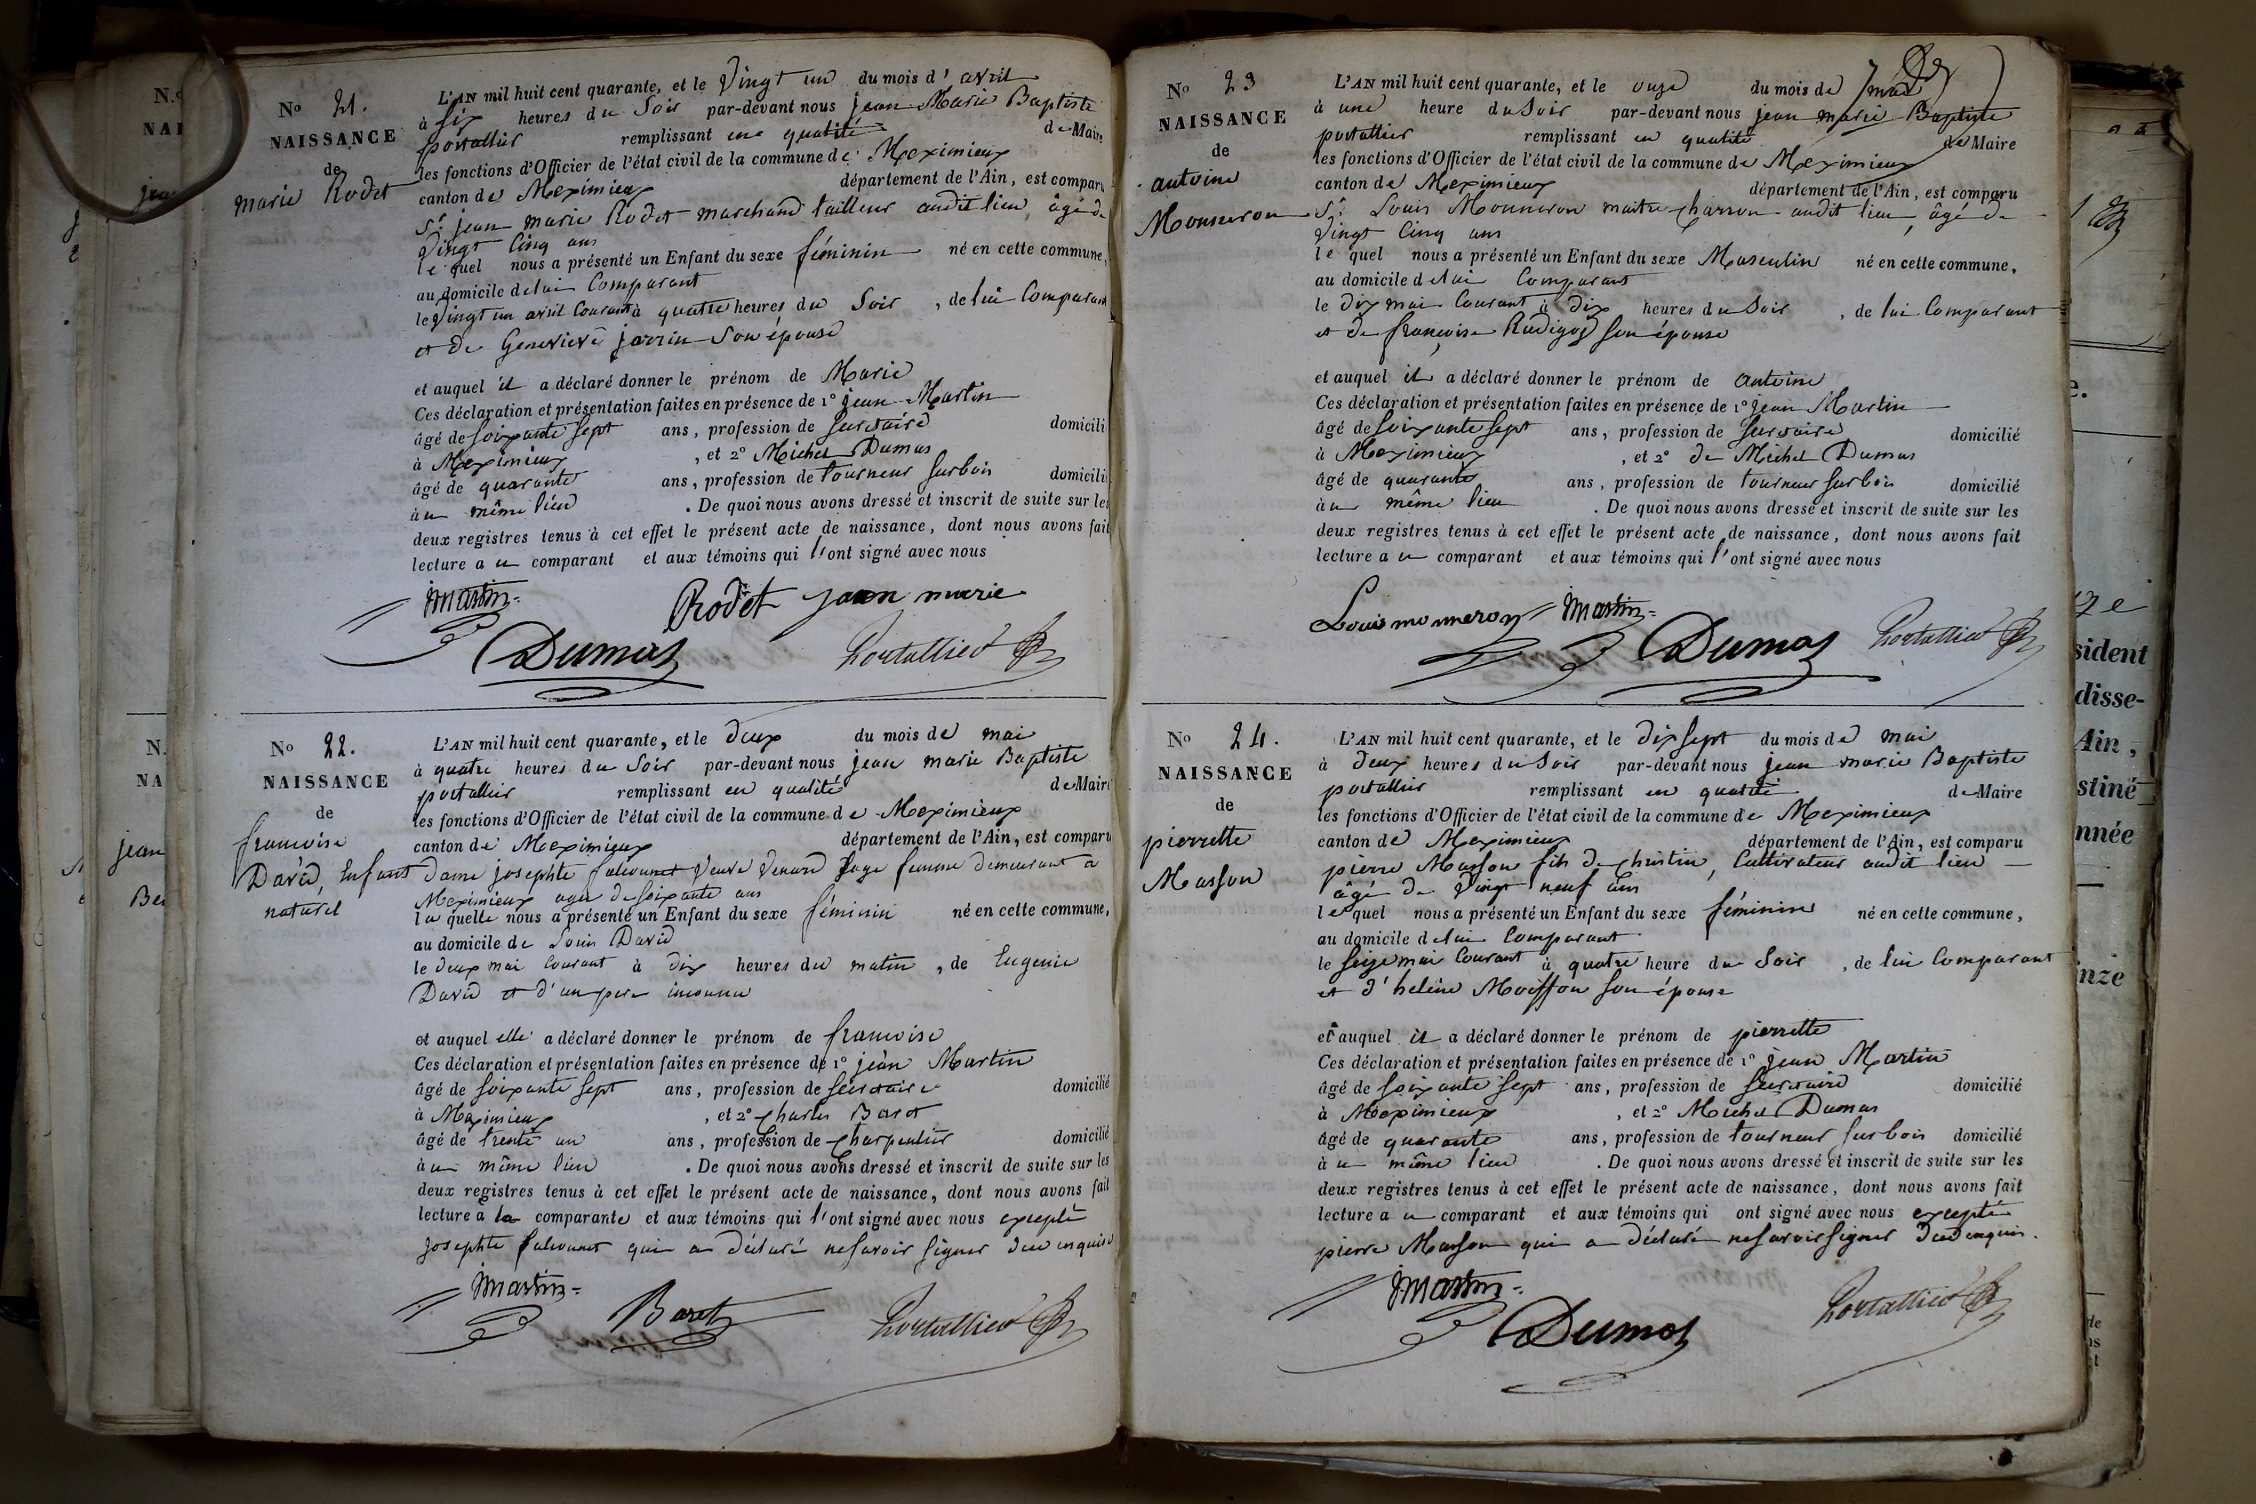 N° 21.
NAISSANCE
de
marie Rodet
L'AN mil huit cent quarante, et le Vingt un du mois d' avril
à Six heures du Soir par-devant nous jean Marie Baptiste
portallier remplissant en qualité de Maire
les fonctions d'Officier de l'état civil de la commune de Meximieux
canton de Meximieux département de l'Ain, est comparu
Sr. jean marie Rodet marchand tailleur audit lieu, âgé de
Vingt Cinq ans
le quel nous a présenté un Enfant du sexe féminin né en cette commune,
au domicile de lui Comparant
le Vingt un avril Courant à quatre heures du Soir, de lui Comparant
et de Genevieve jarrin Son épouse
et auquel il a déclaré donner le prénom de Marie
Ces déclaration et présentation faites en présence de 1° jean Martin
âgé de Soixante Sept ans, profession de Secretaire domicilié
à Meximieux, et 2° Michel Dumas
âgé de quarante ans, profession de tourneur Sur bois domicilié
à un même lieu. De quoi nous avons dressé et inscrit de suite sur les
deux registres tenus à cet effet le présent acte de naissance, dont nous avons fait
lecture a u comparant et aux témoins qui l'ont signé avec nous
jmartin
Rodet jean marie
Dumas
Portallier
N° 22.
NAISSANCE
de
francoise
David, Enfant
naturel
L'AN mil huit cent quarante, et le deux du mois de mai
à quatre heures du Soir par-devant nous jean marie Baptiste
portallier remplissant en qualité de Maire
les fonctions d'Officier de l'état civil de la commune de Meximieux
canton de Meximieux département de l'Ain, est comparu
Dame josephte Veuve Venard Sage femme demeurant a
Meximieux agée de Soixante ans
la quelle nous a présenté un Enfant du sexe féminin né en cette commune,
au domicile de Louis David
le deux mai Courant à dix heures du matin, de Eugenie
David et d'un pere inconnu
et auquel elle a déclaré donner le prénom de francoise
Ces déclaration et présentation faites en présence de 1° jean Martin
âgé de Soixante Sept ans, profession de Secretaire domicilié
à Meximieux, et 2° Charles Baret
âgé de trente un ans, profession de Charpentier domicilié
à un même lieu. De quoi nous avons dressé et inscrit de suite sur les
deux registres tenus à cet effet le présent acte de naissance, dont nous avons fait
lecture à la comparante et aux témoins qui l'ont signé avec nous excepté
josephte qui a déclaré ne Savoir Signer de ce enquise
jmartin
Baret
Portallier
N° 23
NAISSANCE
de
antoine
Monneron
L'AN mil huit cent quarante, et le onze du mois de mai
à une heure du Soir par-devant nous jean marie Baptiste
portallier remplissant en qualité de Maire
les fonctions d'Officier de l'état civil de la commune de Meximieux
canton de Meximieux département de l'Ain, est comparu
Sr. Louis Monneron maitre Charron audit lieu, âgé de
Vingt Cinq ans
le quel nous a présenté un Enfant du sexe Masculin né en cette commune,
au domicile de lui Comparant
le dix mai Courant à dix heures du Soir, de lui Comparant
et de françoise Rudigoz Son épouse
et auquel il a déclaré donner le prénom de antoine
Ces déclaration et présentation faites en présence de 1° jean Martin
âgé de Soixante Sept ans, profession de Secretaire domicilié
à Meximieux, et 2° de Michel Dumas
âgé de quarante ans, profession de tourneur Sur bois domicilié
à un même lieu. De quoi nous avons dressé et inscrit de suite sur les
deux registres tenus à cet effet le présent acte de naissance, dont nous avons fait
lecture a u comparant et aux témoins qui l'ont signé avec nous
Louis monneron
jmartin
Dumas
Portallier
N° 24.
NAISSANCE
de
pierrette
Masson
L'AN mil huit cent quarante, et le dix Sept du mois de mai
à deux heures du Soir par-devant nous jean marie Baptiste
portallier remplissant en qualité de Maire
les fonctions d'Officier de l'état civil de la commune de Meximieux
canton de Meximieux département de l'Ain, est comparu
pierre Masson fils de Christin, Cultivateur audit lieu
âgé de Vingt neuf ans
le quel nous a présenté un Enfant du sexe féminin né en cette commune,
au domicile de lui Comparant
le Seize mai Courant à quatre heure du Soir, de lui Comparant
et d'helène Moiffon Son épouse
et auquel il a déclaré donner le prénom de pierrette
Ces déclaration et présentation faites en présence de 1° jean Martin
âgé de Soixante Sept ans, profession de Secretaire domicilié
à Meximieux, et 2° Michel Dumas
âgé de quarante ans, profession de tourneur Sur bois domicilié
à un même lieu. De quoi nous avons dressé et inscrit de suite sur les
deux registres tenus à cet effet le présent acte de naissance, dont nous avons fait
lecture a u comparant et aux témoins qui ont signé avec nous excepté
pierre Masson qui a déclaré ne Savoir Signer de ce enquis.
jmartin
Dumas
Portallier